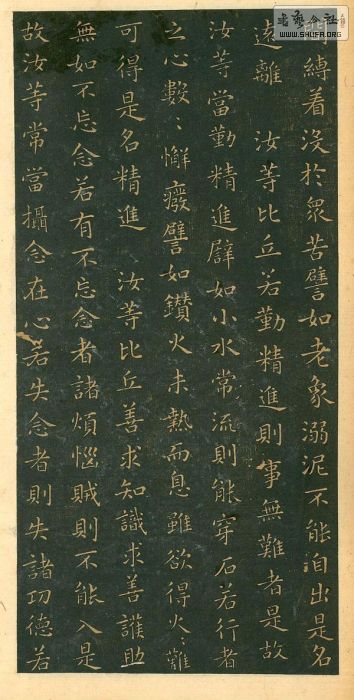 縛着沒於眾苦譬如老象溺泥不能自出是名
遠離 汝等比丘若勤精進則事無難者是故
汝等當勤精進辟如小水常流則能穿石若行者
之心數〻懈癈譬如鑽火未熱而息雖欲得火〻難
可得是名精進 汝等比丘善求知識求善護助
無如不忘念若有不忘念者諸煩惱賊則不能入是
故汝等常當攝念在心若失念者則失諸功德若
WWW.SHUFA.ORG